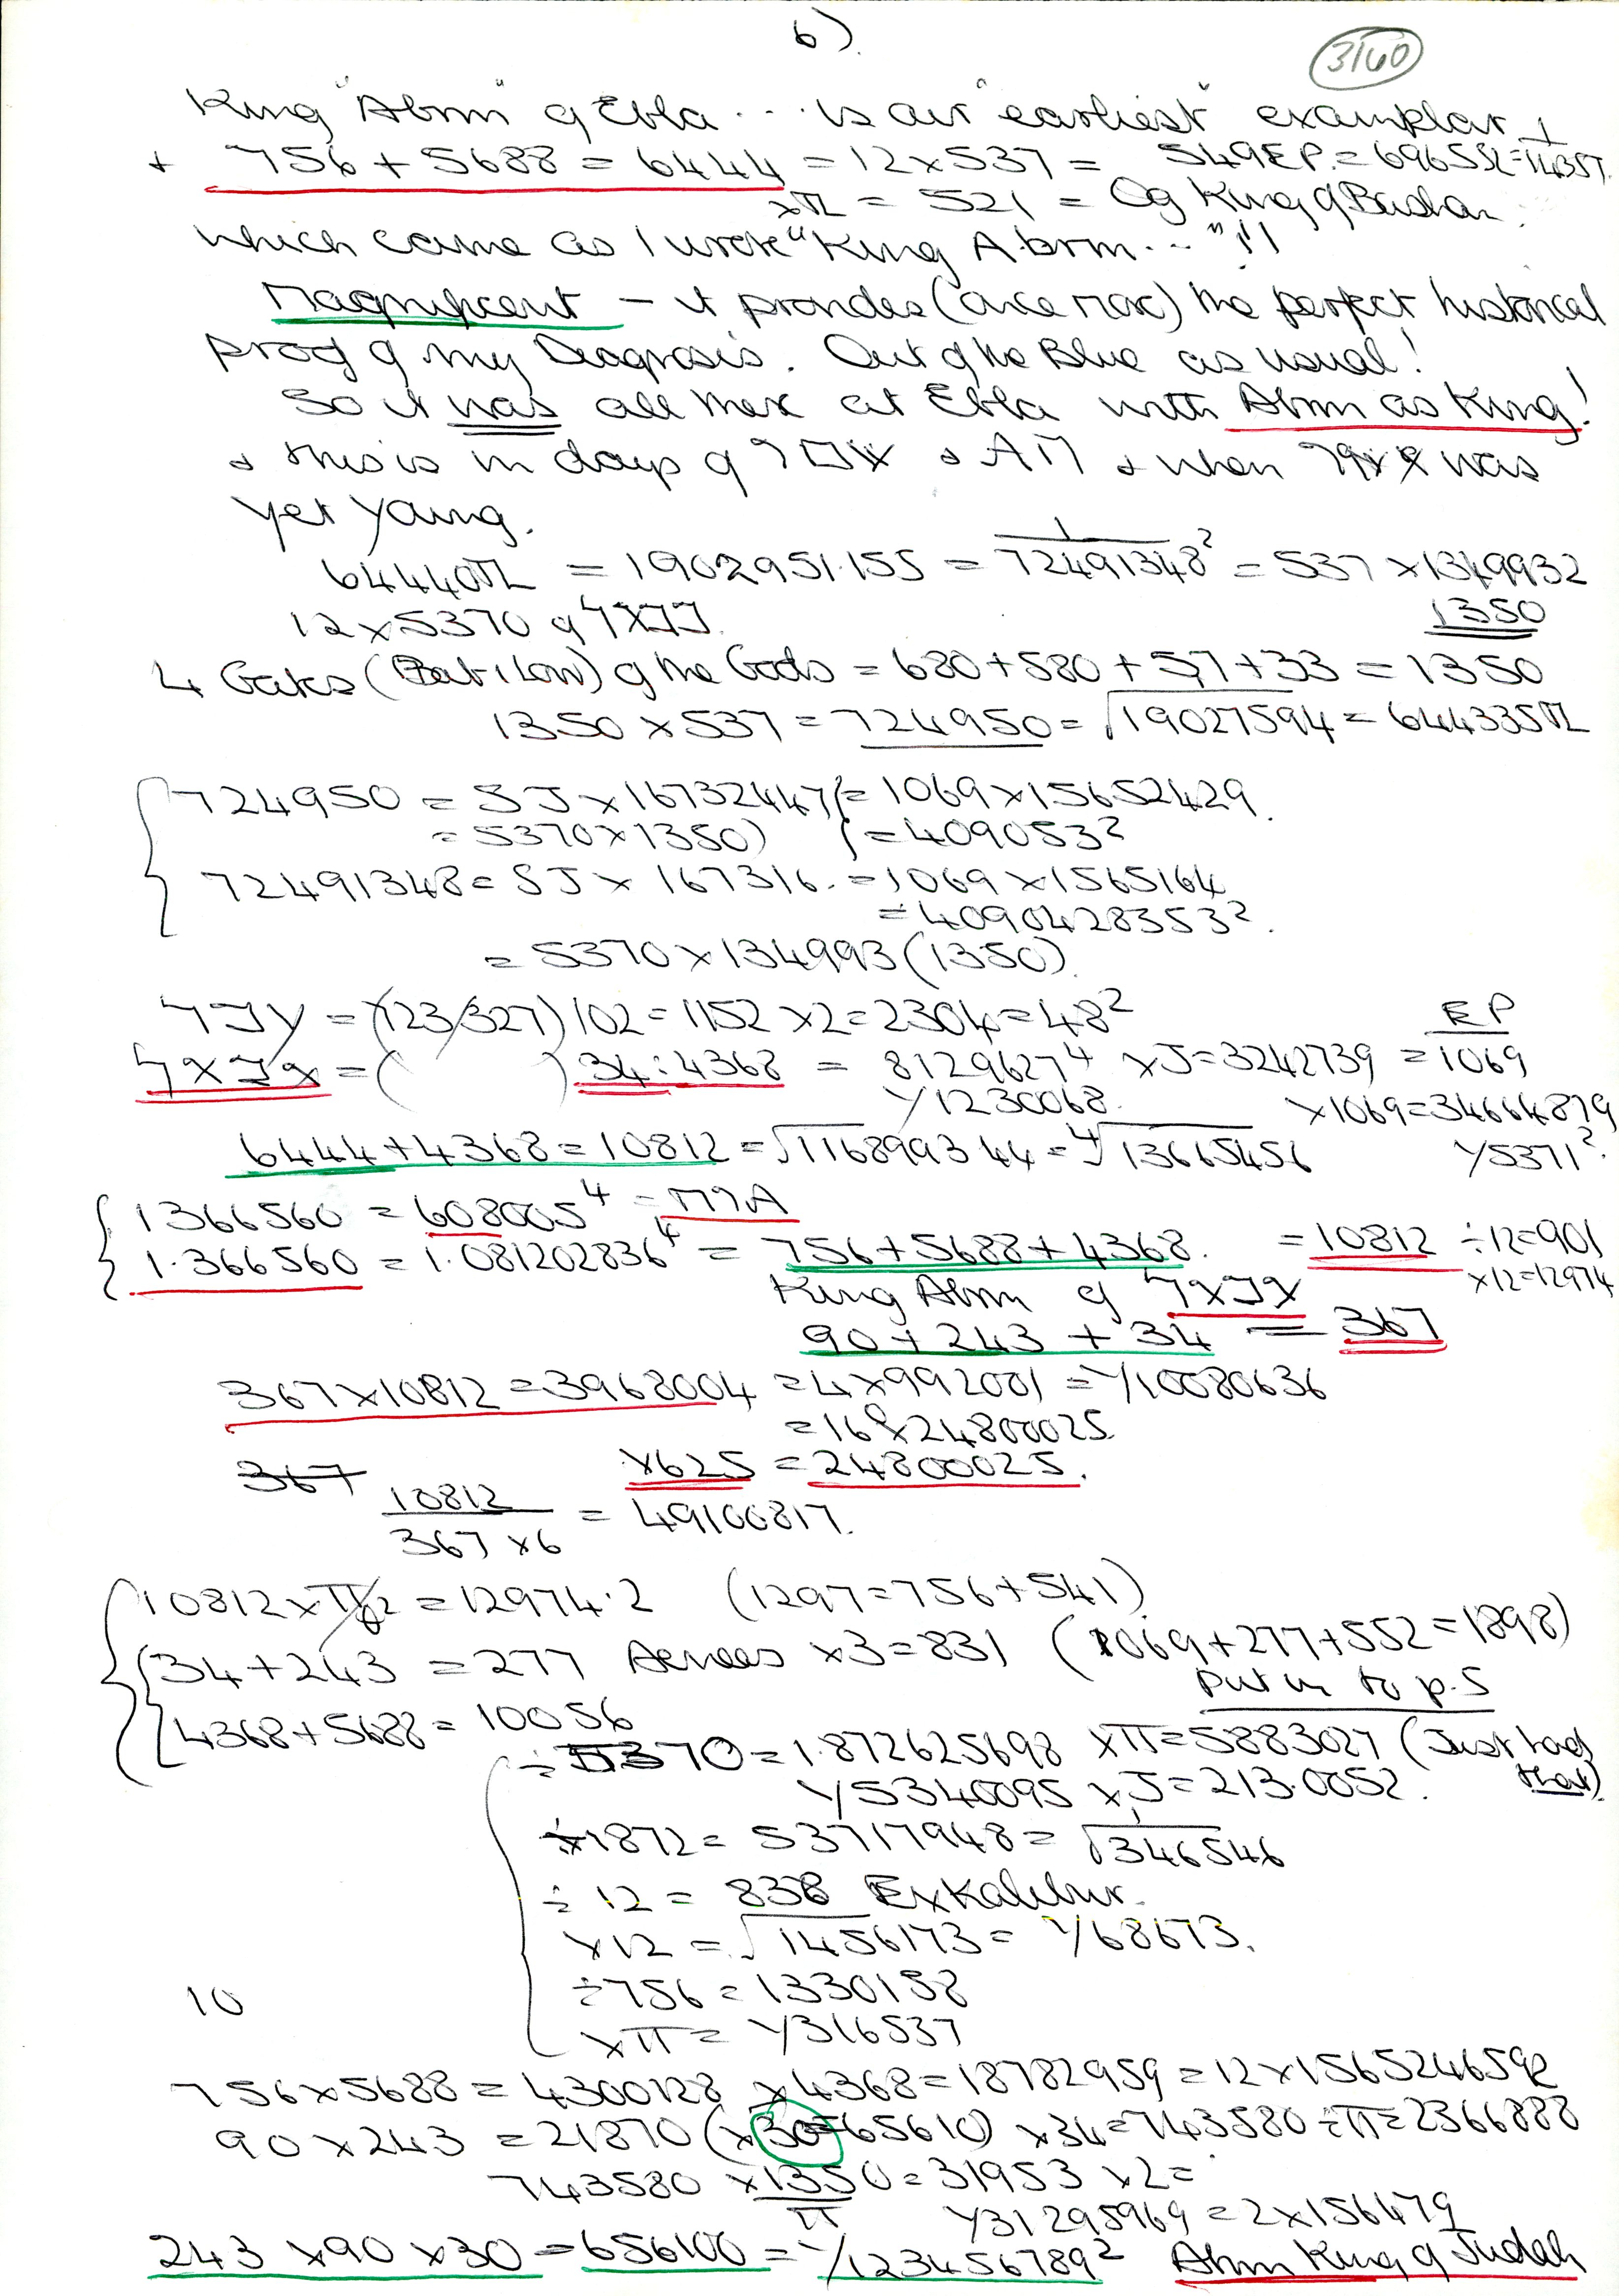 6).
3160
King "Abrm" of Ebla ... is our "earliest" examplar
+ 756 + 5688 = 6444 = 12 x 537 = 549 EP. =
= 521 = Og King of Bashan.
which came as I wrote "King Abrm ..." !!
Magnificent - it provides (once more) the perfect historical
proof of my Diagnosis. Out of the Blue as usual!
So it was all there at Ebla with Abrm as King!
+ this is in days of
+ when
was
yet young.
= 1902951.155 =
72491348² = 537 x 1349932
12 x 5370 of
1350
4 Gates (Bab-ilon) of the Gods = 680 + 580 + 57 + 33 = 1350
1350 x 537 = 724950 = √19027594 =
724950 = SJ x 16732447 = 1069 x 15652429.
= 5370 x 1350) = 409053²
72491348 = SJ x 167316. = 1069 x 1565164
= 4090428353².
= 5370 x 134993 (1350).
= (123/327) 102 = 1152 x 2 = 2304 = 48²
EP
= ( ) 34 : 4368 = 8129627⁴ x J = 3242739 = 1069
Y1230068. x 1069 = 34664879
6444 + 4368 = 10812 = √116899344 = ⁴√13665456 Y5371².
1366560 = 608005⁴ =
1.366560 = 1.081202836⁴ = 756 + 5688 + 4368. = 10812 ÷ 12 = 901
King Abrm of x 12 = 12974
90 + 243 + 34 = 367
367 x 10812 = 3968004 = 4 x 992001 = Y10080636
= 16 x 24800025.
367 x 625 = 24800025.
10812
367 x 6
= 49100817.
10812 x π/2 = 12974.2 (1297 = 756 + 541)
34 + 243 = 277 Aeneas x 3 = 831 (1069 + 277 + 552 = 1898)
Put in to p.5
4368 + 5688 = 10056
÷ 5370 = 1.872625698 x π = 5883027 (Just had that).
Y5340095 x J = 213.0052.
÷ 1872 = 53717948 = √346546
÷ 12 = 838 Exkalibur.
x 12 = √1456173 = Y68673.
÷ 756 = 1330158
10
x π = Y316537
756 x 5688 = 4300128 x 4368 = 18782959 = 12 x 1565246592
90 x 243 = 21870 (x 30 = 65610) x 34 = 743580 ÷ π = 2366888
743580 x 1350 = 31953 x 2 =
π
Y31295969 = 2 x 156479
243 x 90 x 30 = 656100 = Y/123456789² Abrm King of Judah